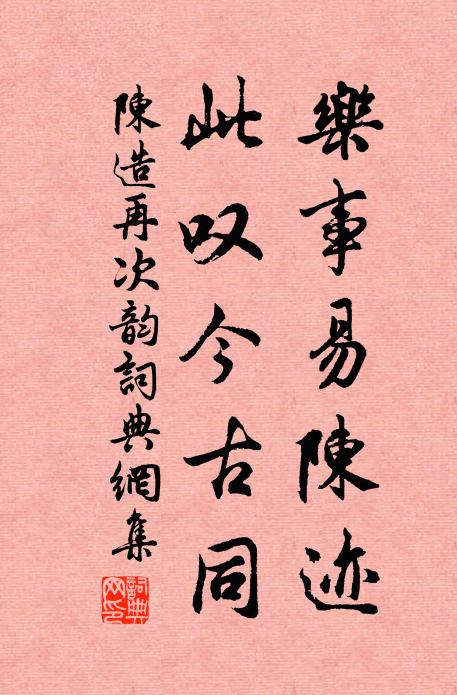 樂事易陳迹
此叹今古同
陳造再次韵詞典網集
詞典網印